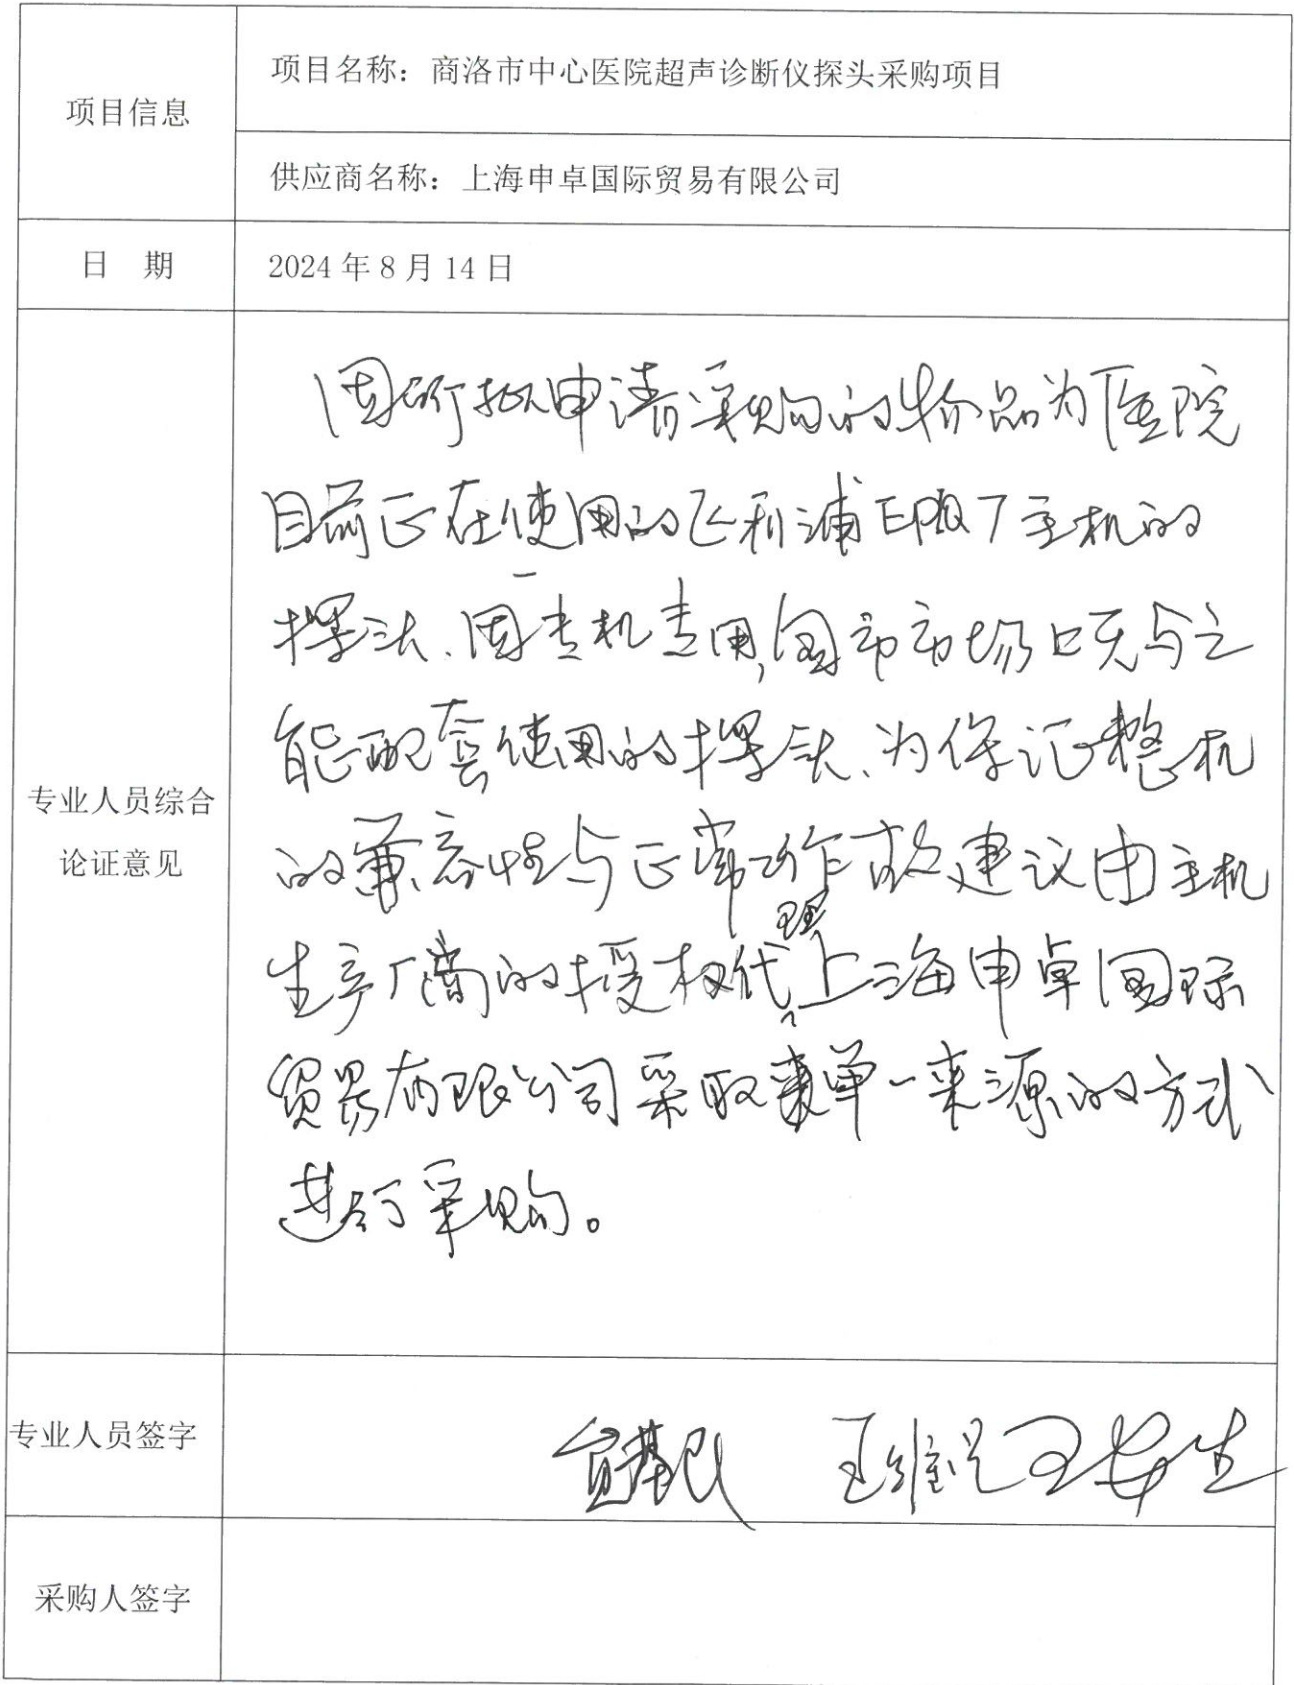 项目信息
项目名称：商洛市中心医院超声诊断仪探头采购项目
供应商名称：上海申卓国际贸易有限公司
日 期
2024年8月14日
专业人员综合
论证意见
因所拟申请采购的物品为医院
目前正在使用的飞利浦EPIQ7主机的
探头、因专机专用,国市市场无与之
能配套使用的探头、为保证整机
的兼容性与正常工作故建议由主机
生产厂商的授权代理上海申卓国际
贸易有限公司采取单一来源的方式
进行采购。
专业人员签字
采购人签字